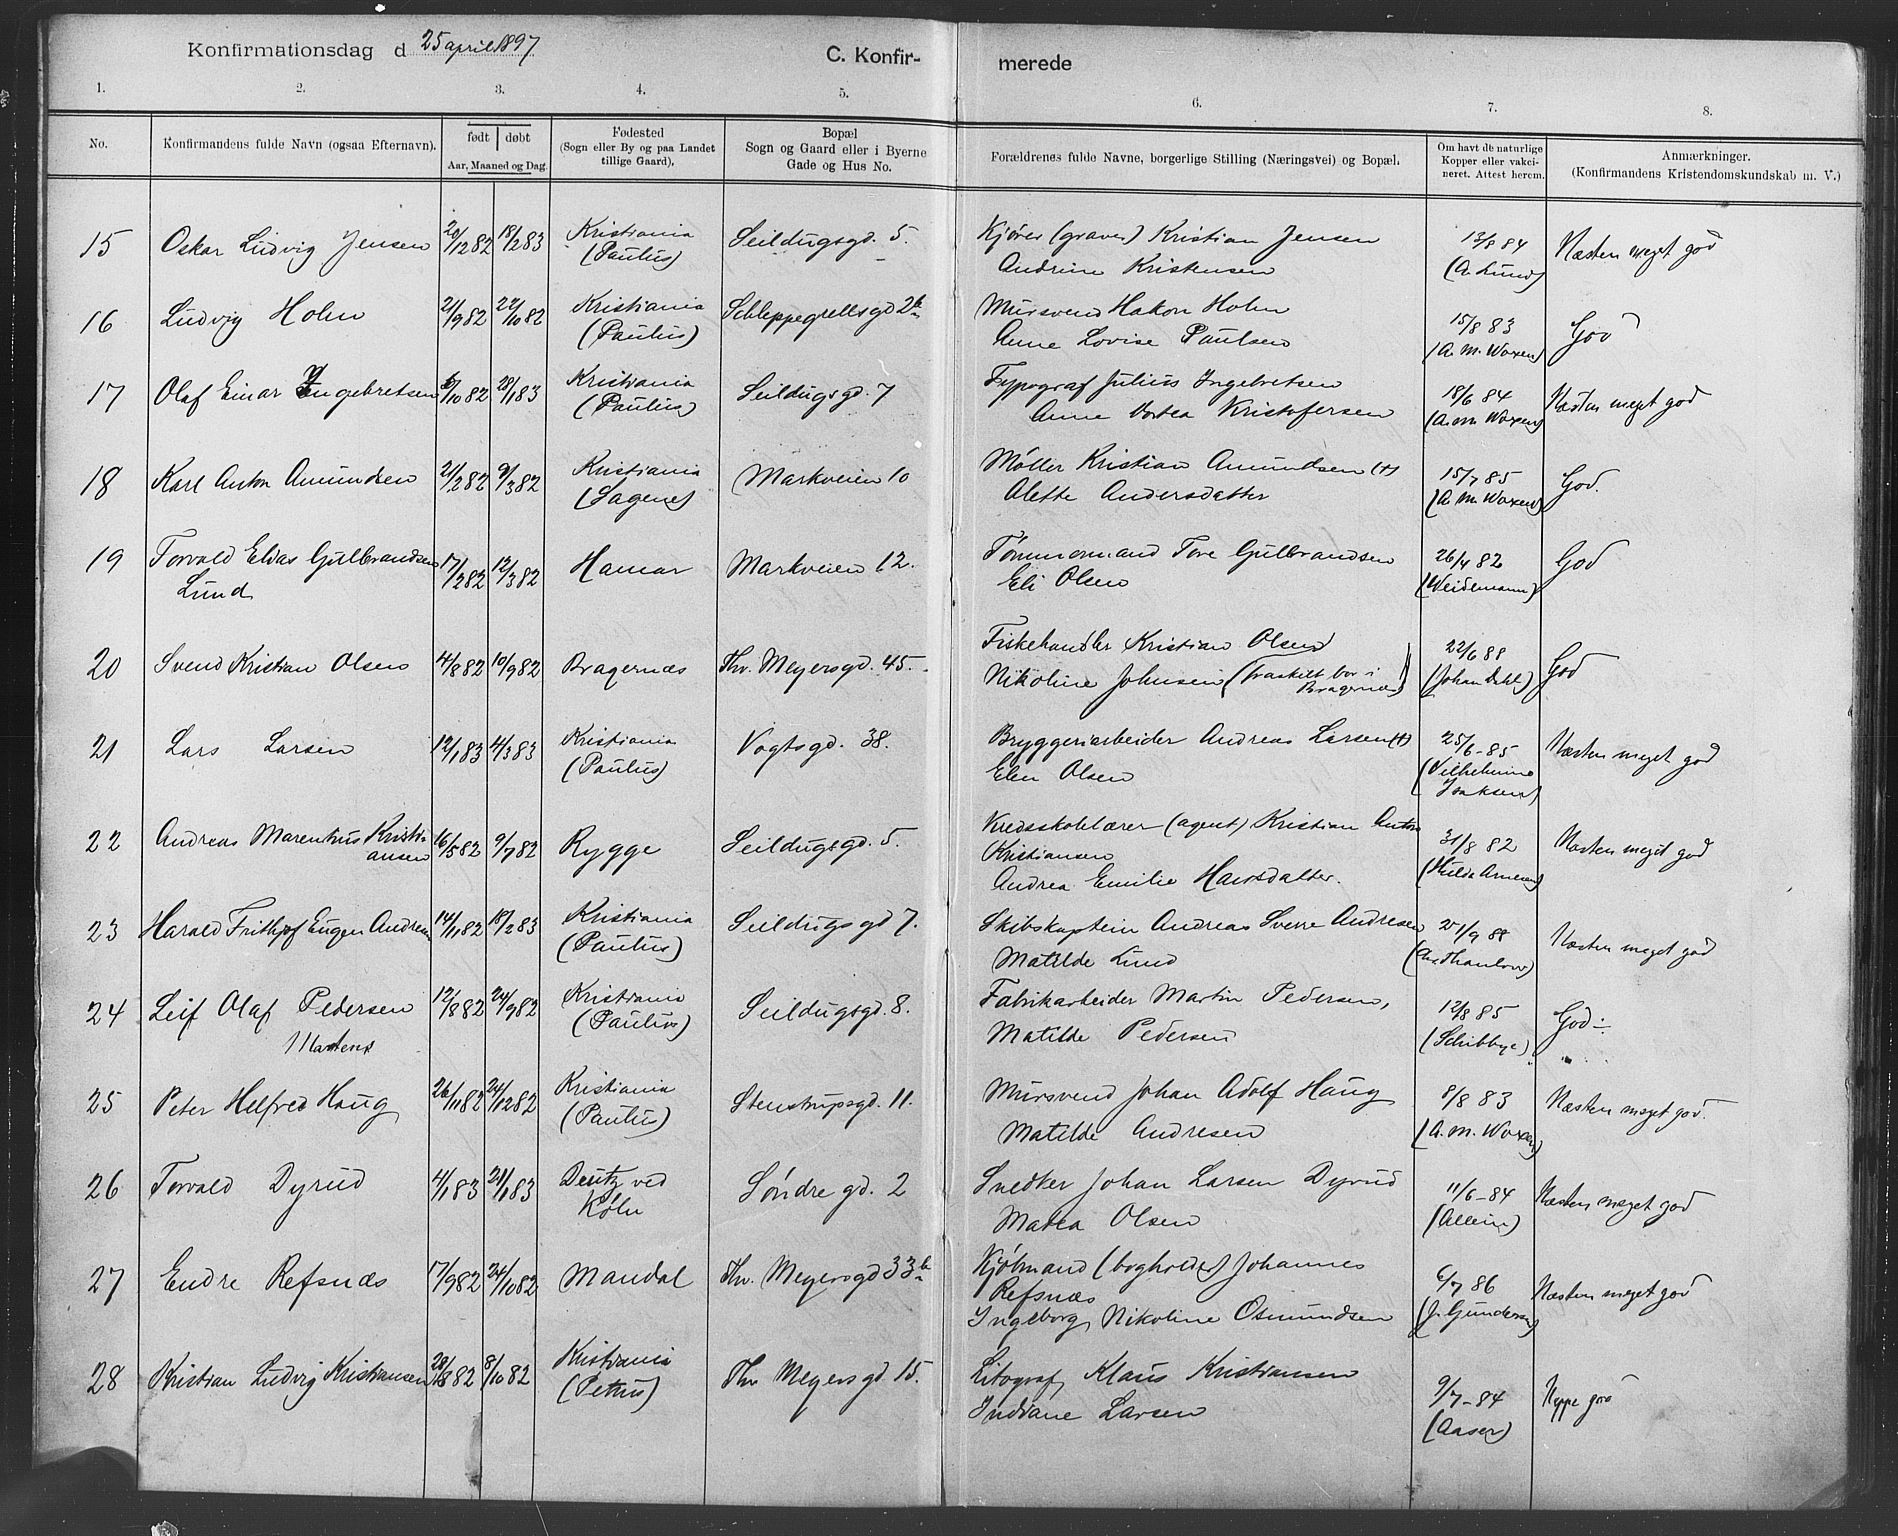 Konfirmationsdag d 25 april 1897 C. Konfir- merede
1. 2. 3. 4. 5. 6. 7. 8.
No.
Konfirmandens fulde Navn (ogsaa Efternavn).
født døbt
Aar, Maaned og Dag.
Fødested
(Sogn eller By og paa Landet
tillige Gaard).
Bopæl
Sogn og Gaard eller i Byerne
Gade og Hus No.
Forældrenes fulde Navne, borgerlige Stilling (Næringsvei) og Bopæl.
Om havt de naturlige
Kopper eller vakci-
neret. Attest herom.
Anmærkninger.
(Konfirmandens Kristendomskundskab m. V.)
15 Oskar Ludvig Jensen 20/12 82 18/2 83 Kristiania Seildugsgd. 5. Kjører (graver) Kristian Jensen 13/8 84 Næsten meget god
(Paulus) Andrine Kristensen (A. Lund)
16 Ludvig Holm 2/9 82 22/10 82 Kristiania Schleppegrellsgd 2b Mursvend Hakon Holm 15/8 83 God
(Paulus) Anne Lovise Paulsen (A. M. Woxen)
17 Olaf Einar Ingebretsen 6/10 82 28/1 83 Kristiania Seildugsgd. 7 Typograf Julius Ingebretsen 18/6 84 Næsten meget god
(Paulus) Anne Dortea Kristofersen (A. M. Woxen)
18 Karl Anton Amundsen 21/2 82 9/3 82 Kristiania Markveien 10 Møller Kristian Amundsen (+) 15/7 85 God.
(Sagene) Alette Andersdatter (A. M. Woxen)
19 Torvald Elias Gulbrandsen 17/2 82 12/3 82 Hamar Markveien 12. Tømmermand Tore Gulbrandsen 26/4 82 God
Lund Eli Olsen (Weidemann)
20 Svend Kristian Olsen 14/8 82 10/9 82 Bragernæs Thv. Meyersgd. 45. Fiskehandler Kristian Olsen 22/6 88 God
Nikoline Johnsen (fraskilt bor i (Johan Dahl)
Bragernæs)
21 Lars Larsen 12/1 83 4/3 83 Kristiania Vogtsgd. 38. Bryggeriarbeider Andreas Larsen (+) 25/6-85 Næsten meget god
(Paulus) Elen Olsen (Vilhelmine
Isaksen)
22 Andreas Marenthius Kristi- 16/5 82 9/7 82 Rygge Seildugsgd. 5. Kredsskolelærer (agent) Kristian Anton 31/8 82 Næsten meget god
ansen Kristiansen (Hulda Arnesen)
Andrea Emilie Hansdatter.
23 Harald Frithjof Eugen Andresen 14/11 82 18/2 83 Kristiania Seildugsgd 7. Skibskaptein Andreas Sverre Andresen 21/9 88 Næsten meget god
(Paulus) Matilde Lund
24 Leif Olaf Pedersen 12/8 82 24/9 82 Kristiania Seildugsgd. 8. Fabrikarbeider Martin Pedersen, 12/8 85 God
Martens (Paulus) Matilde Pedersen (Schibbye)
25 Peter Helfred Haug 26/11 82 24/12 82 Kristiania Stenstrupsgd. 11. Mursvend Johan Adolf Haug 8/8 83 Næsten meget god.
(Paulus) Matilde Andresen (A. M. Woxen)
26 Torvald Dyrud 4/1 83 21/1 83 Deutz ved Søndre gd. 2 Snedker Johan Larsen Dyrud 11/6-84 Næsten meget god
Køln Matea Olsen (Allein)
27 Endre Refsnæs 17/9 82 24/10 82 Mandal Thv. Meyersgd 33b Kjøbmand (bogholder) Johannes 6/7 86 Næsten meget god
Refsnæs (J. Gundersen)
Ingeborg Nikoline Osmundsen
28 Kristian Ludvig Kristiansen 28/8 82 8/10 82 Kristiania Thv Meyersgd 15. Litograf Klaus Kristiansen 9/7-84 Neppe god
(Petrus) Indiane Larsen (Aaser)